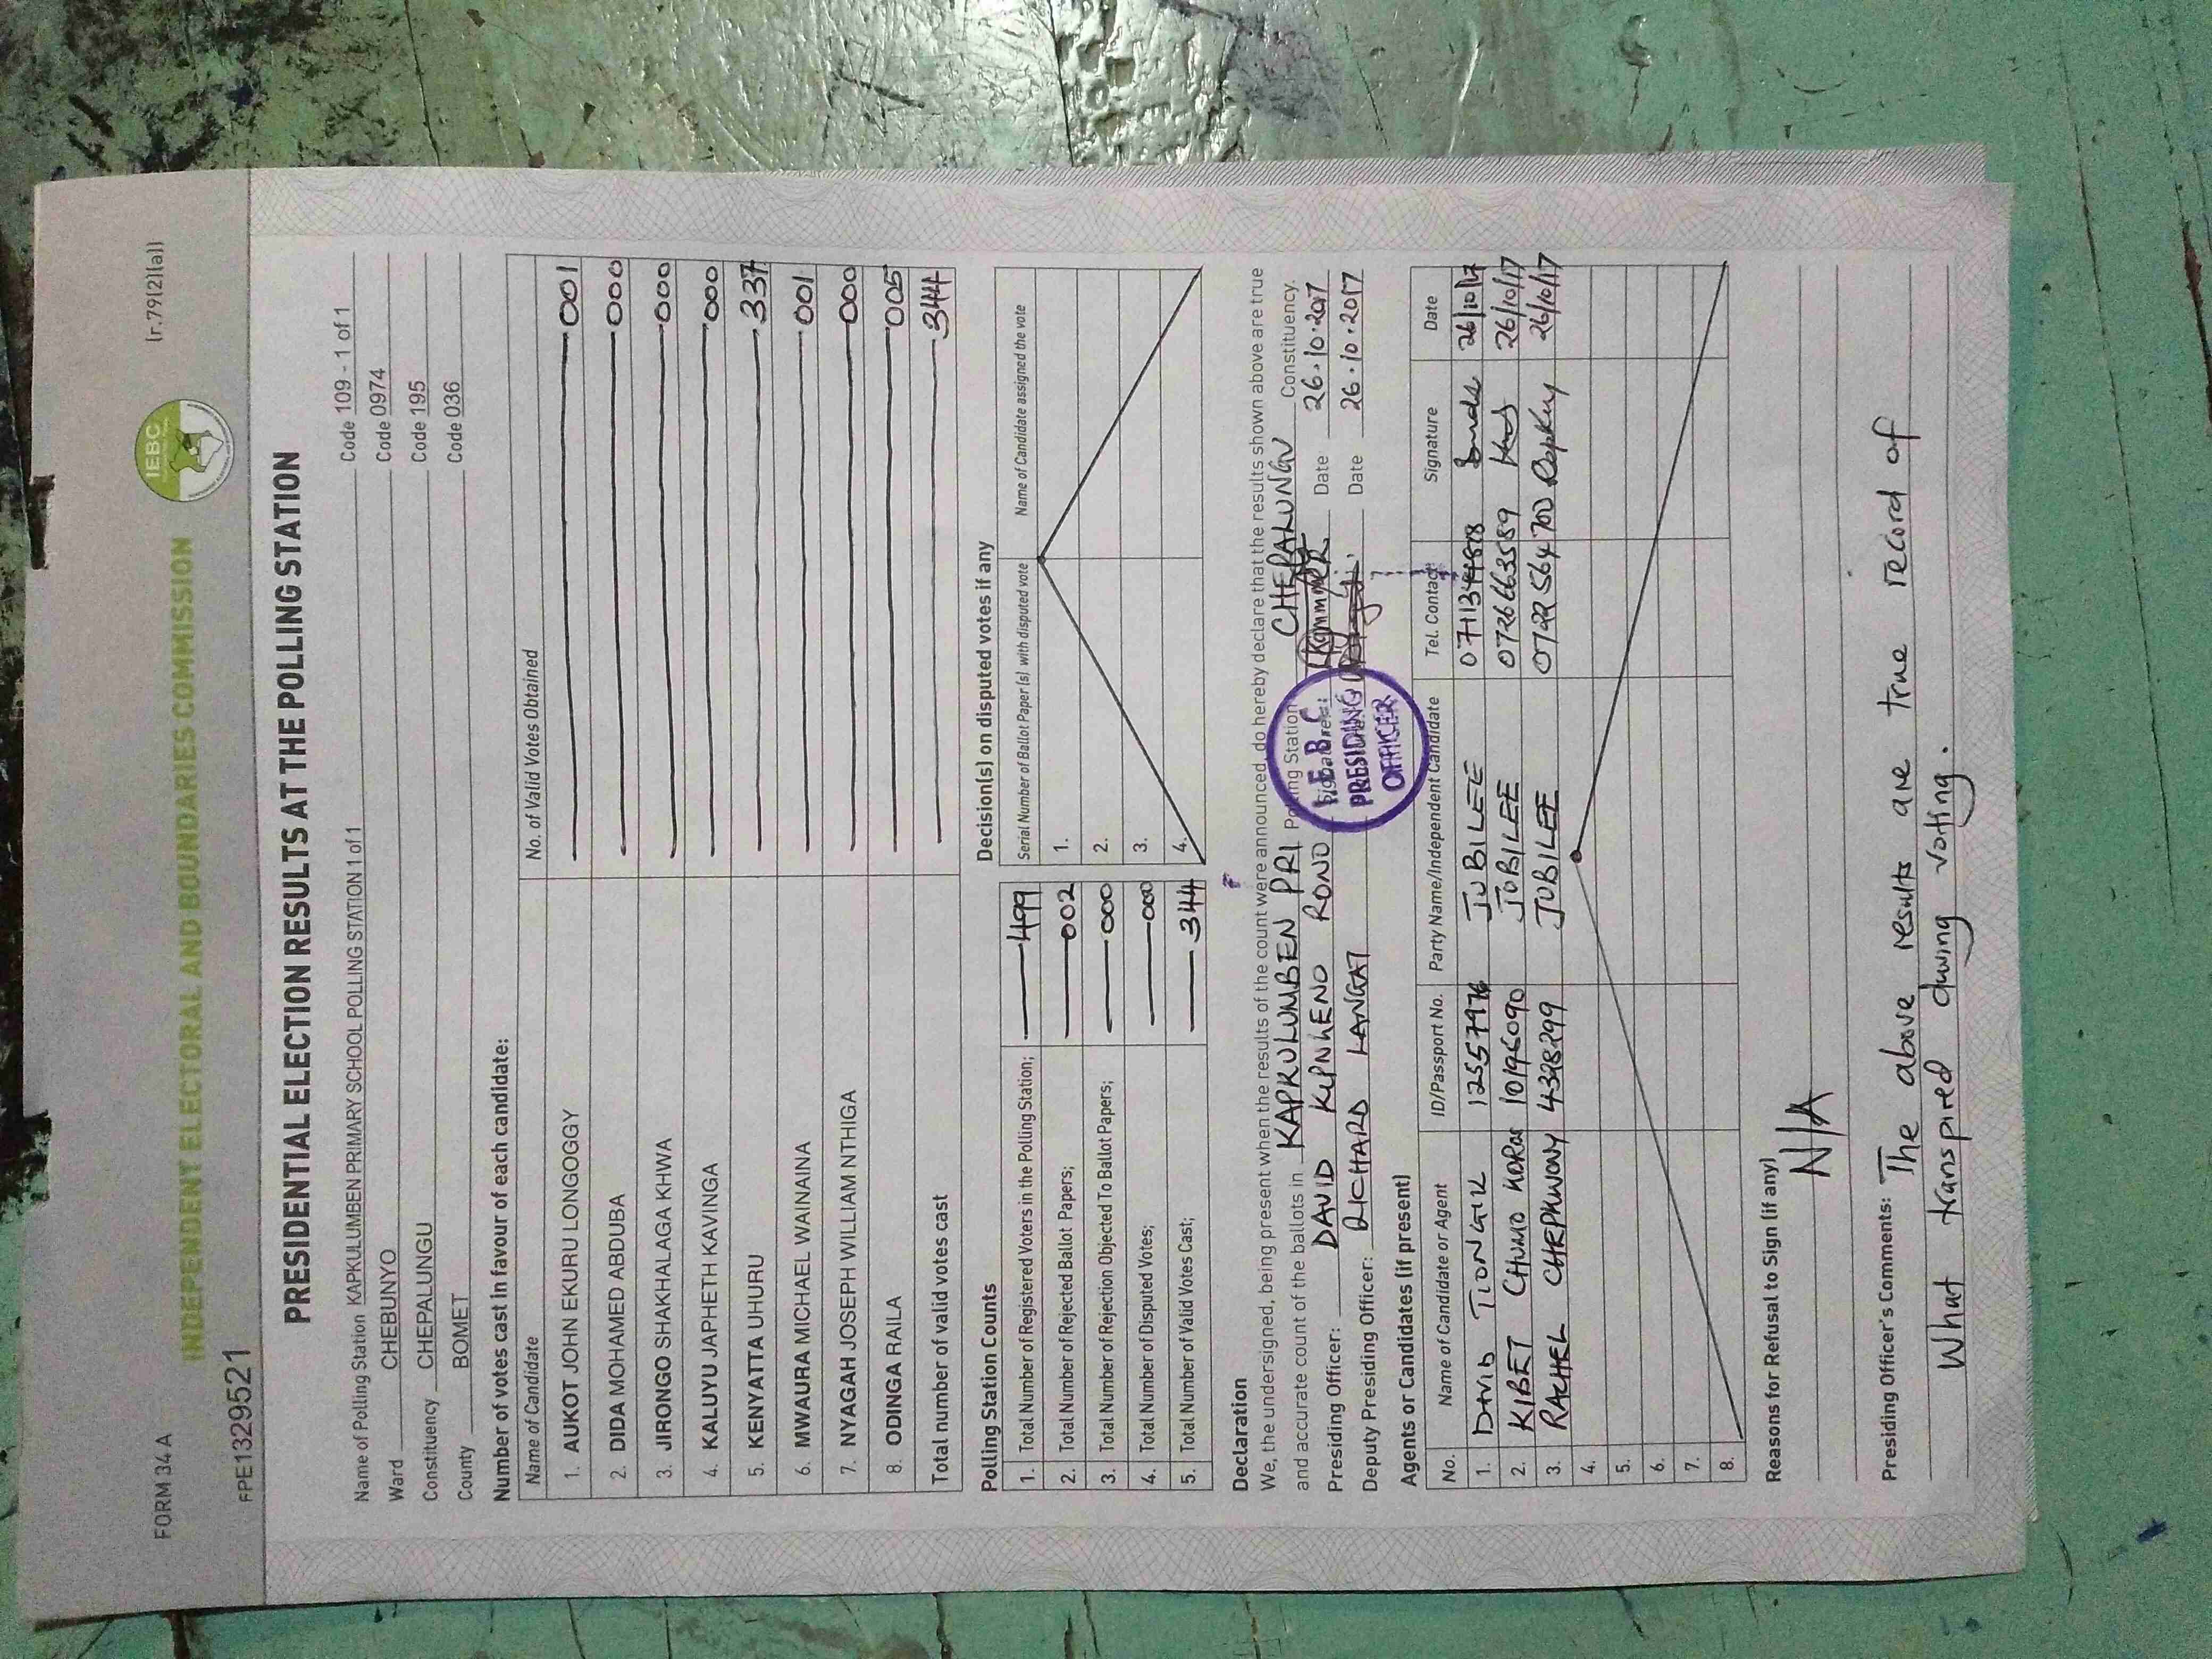 FORM 34 A
(r.79(2)(a))
IEBC
INDEPENDENT ELECTORAL AND BOUNDARIES COMMISSION
FPE1329521
PRESIDENTIAL ELECTION RESULTS AT THE POLLING STATION
Name of Polling Station KAPKULUMBEN PRIMARY SCHOOL POLLING STATION 1 of 1 Code 109 - 1 of 1
Ward CHEBUNYO Code 0974
Constituency CHEPALUNGU Code 195
County BOMET Code 036
Number of votes cast in favour of each candidate:
Name of Candidate No. of Valid Votes Obtained
1. AUKOT JOHN EKURU LONGOGGY 001
2. DIDA MOHAMED ABDUBA 000
3. JIRONGO SHAKHALAGA KHWA 000
4. KALUYU JAPHETH KAVINGA 000
5. KENYATTA UHURU 337
6. MWAURA MICHAEL WAINAINA 001
7. NYAGAH JOSEPH WILLIAM NTHIGA 000
8. ODINGA RAILA 005
Total number of valid votes cast 344
Polling Station Counts
1. Total Number of Registered Voters in the Polling Station; 499
2. Total Number of Rejected Ballot Papers; 002
3. Total Number of Rejection Objected To Ballot Papers; 000
4. Total Number of Disputed Votes; 000
5. Total Number of Valid Votes Cast; 344
Decision(s) on disputed votes if any
Serial Number of Ballot Paper(s) with disputed vote Name of Candidate assigned the vote
1.
2.
3.
4.
Declaration
We, the undersigned, being present when the results of the count were announced, do hereby declare that the results shown above are true
and accurate count of the ballots in KAPKULUMBEN PRI Polling Station CHEPALUNGU Constituency.
Presiding Officer: DAVID KIPNGENO RONO Date 26.10.2017
Deputy Presiding Officer: RICHARD LANGAT Date 26.10.2017
I.E.B.C
PRESIDING
OFFICER
Agents or Candidates (if present)
No. Name of Candidate or Agent ID/Passport No. Party Name/Independent Candidate Tel. Contact Signature Date
1. DAVID TIONGIK 12557976 JUBILEE 26/10/17
2. KIBET CHUMO KOROS 10196090 JUBILEE 0726663589 26/10/17
3. RACHEL CHEPKWONY 4398299 JUBILEE 0722564700 26/10/17
4.
5.
6.
7.
8.
Reasons for Refusal to Sign (if any)
N/A
Presiding Officer's Comments: The above results are true record of
What transpired during voting.